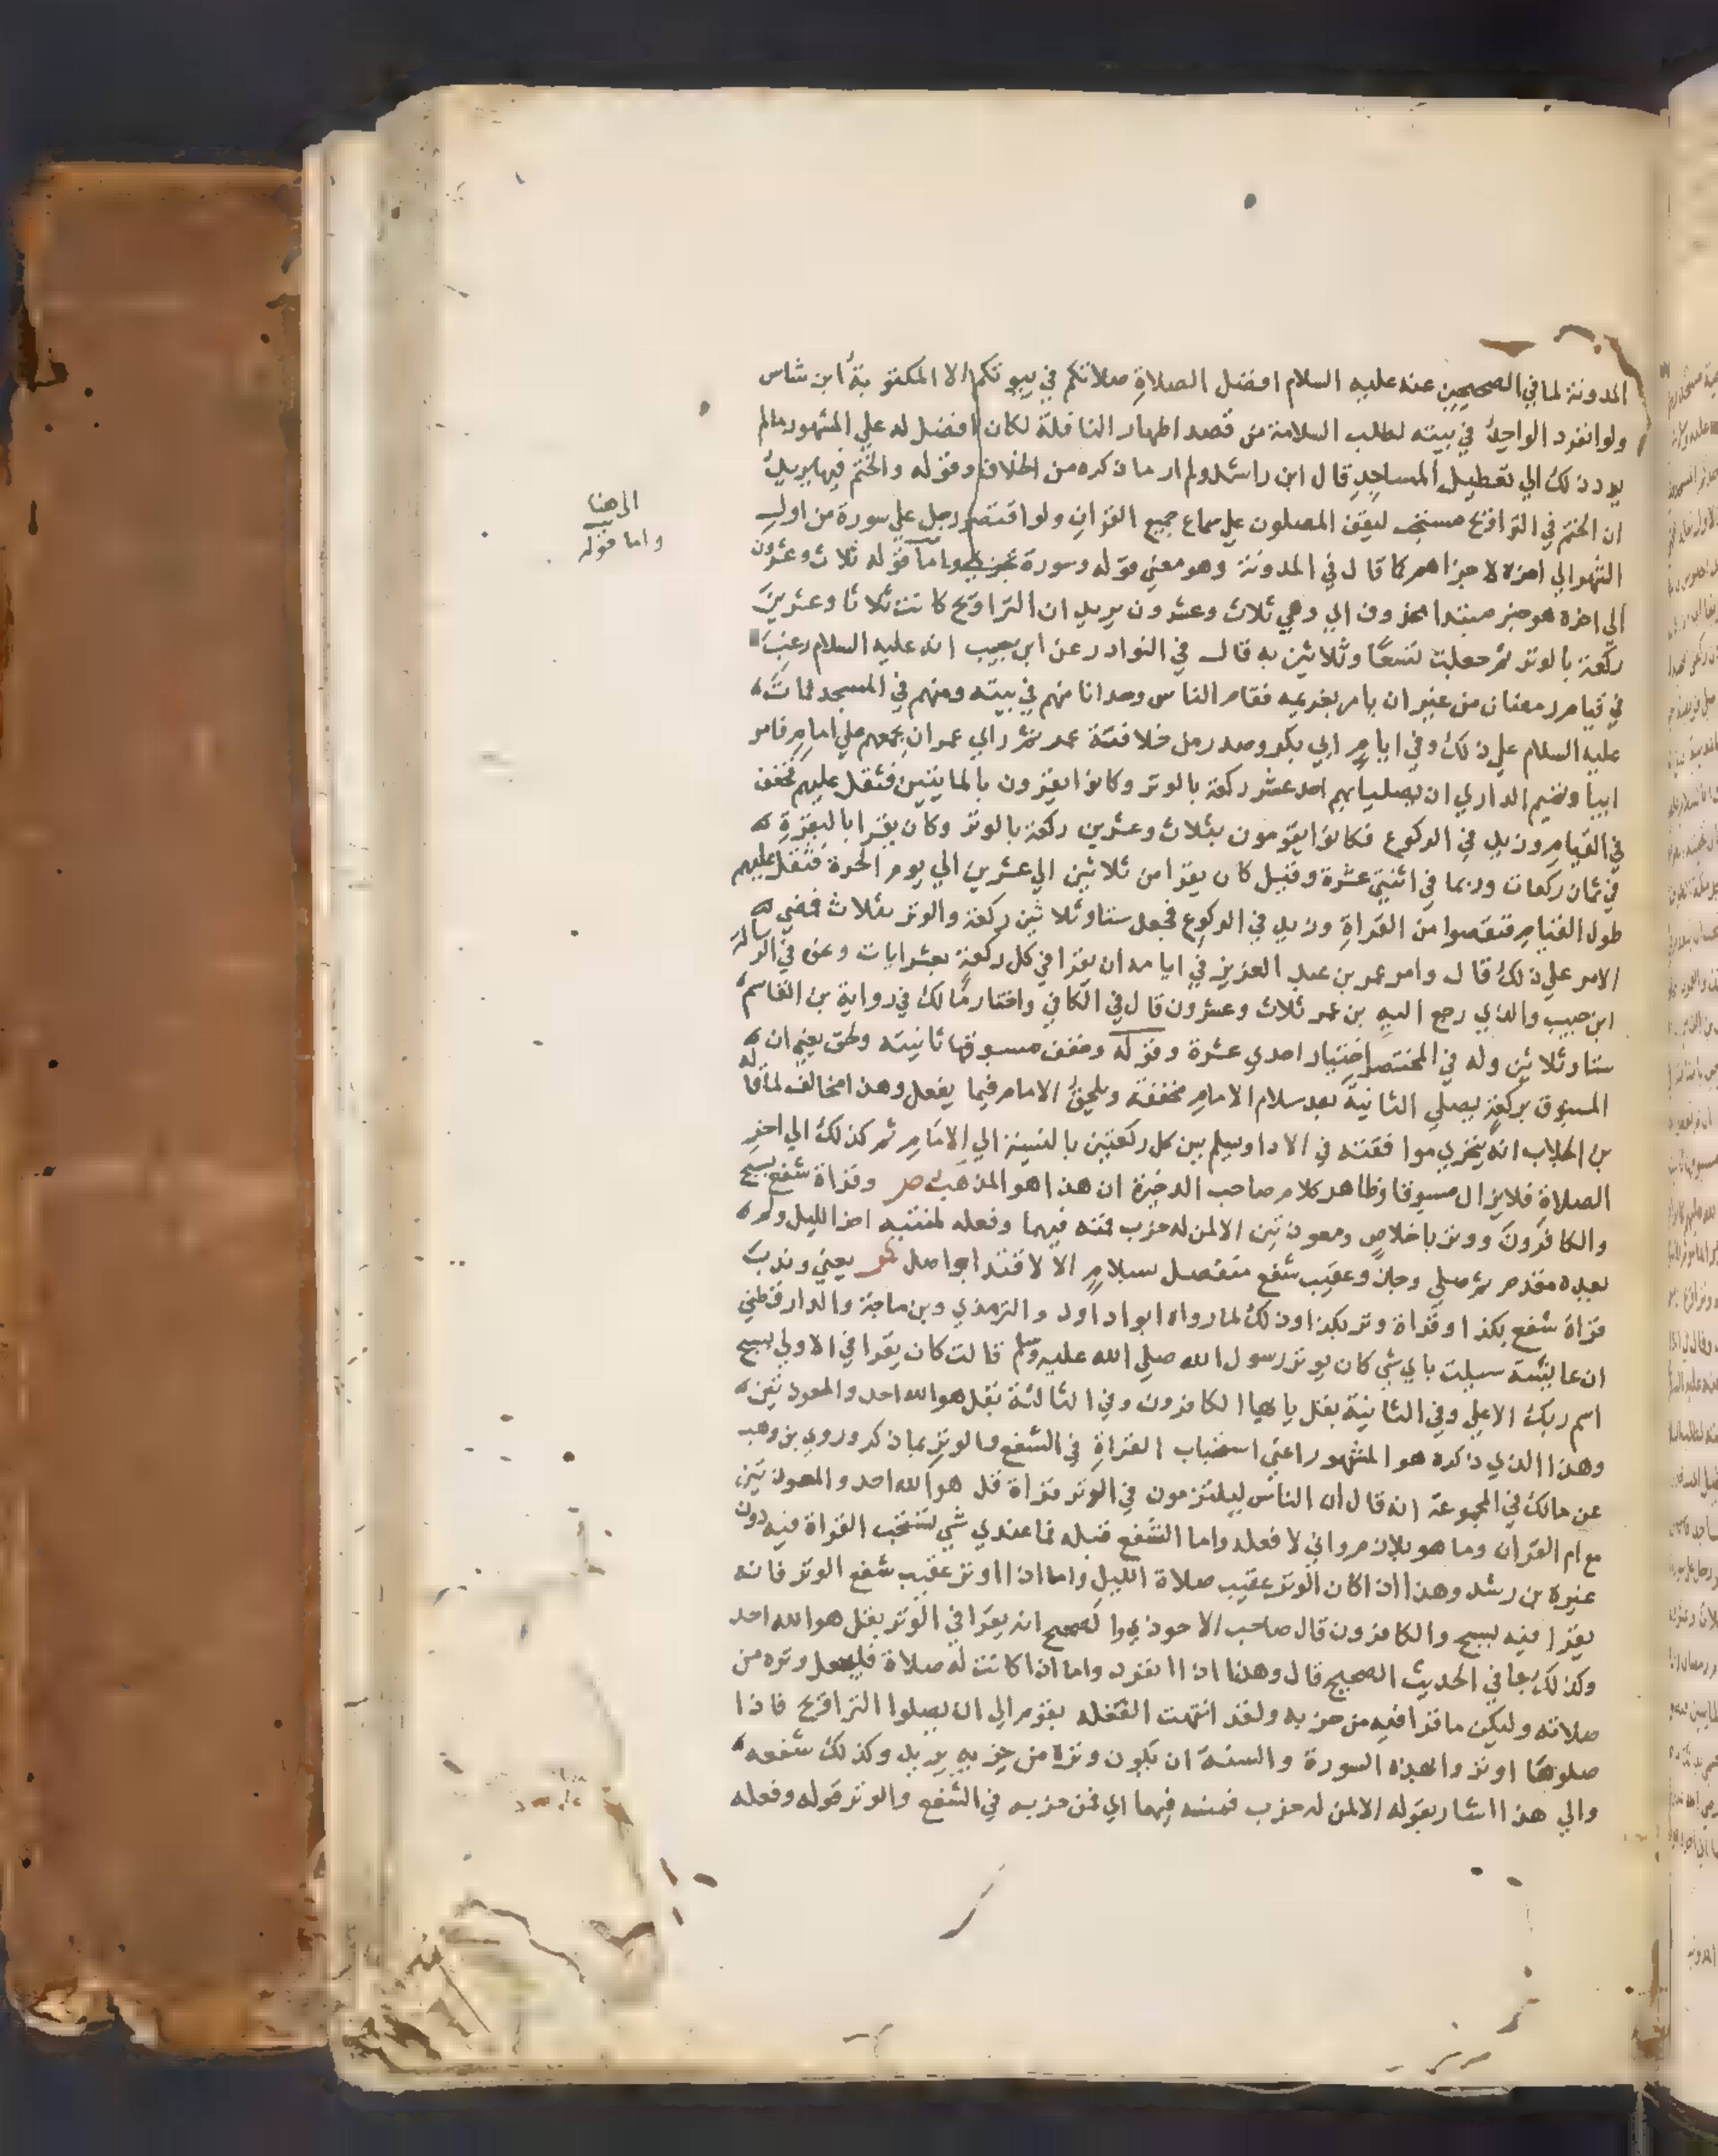 المدونة لما في الصحيحين عنه عليه السلام افضل الصلاة صلاتكم في بيوتكم الا المكتوبة ابن شاس
ولو انفرد الواحد في بيته لطلب السلامة من قصد اظهار النافلة لكان افضل له علي المشهور مالم
يودذلك الي تعطيل المساجد قال ابن راشد ولم ار ما ذكره من الخلاف وقوله والختم فيها يريد
ان الختم في التراويح مستحب ليقف المصلون علي سماع جميع القران ولو اقتصر رجل علي سورة من اول
الشهر الي اخره لاجزاهم كما قال في المدونة وهو معني قوله وسورة تجزي واما قوله ثلاث وعشرون
الي اخره هو خبر مبتدا محذوف اي وهي ثلاث وعشرون يريد ان التراويح كانت ثلاثا وعشرين
ركعة بالوتر ثم جعلت تسعا وثلاثين به قال في النوادر عن ابن حبيب انه عليه السلام رغب
في قيام رمضان من غير ان يامر بعزيمه فقام الناس وحدانا منهم في بيته ومنهم في المسجد فمات
عليه السلام علي ذلك وفي ايام ابي بكر وصدر من خلافة عمر ثم راي عمر ان يجمعهم علي امام فامر
ابيا وتميم الداري ان يصليا بهم احد عشر ركعة بالوتر وكانوا يقرون بالمايتين فثقل عليهم فخفف
في القيام وزيد في الركوع فكانوا يقومون بثلاث وعشرين ركعة بالوتر وكان يقرا بالبقرة
في ثمان ركعات وربما في اثنتي عشرة وقيل كان يقرا من ثلاثين الي عشرين الي يوم الحرة فثقل عليهم
طول القيام فنقصوا من القراة وزيد في الركوع فجعل ستا وثلاثين ركعة والوتر بثلاث فمضي
الامر علي ذلك قال وامر عمر بن عبد العزيز في ايامه ان يقرا في كل ركعة بعشر ايات وعن في الرسالة
ابن حبيب والذي رجع اليه بن عمر ثلاث وعشرون قال في الكافي واختار مالك في رواية بن القاسم
ستا وثلاثين وله في المختصر اختيار احدي عشرة وقوله وخفف مسبوقها ثانيته ولحق يعني ان
المسبوق بركعة يصلي الثانية بعد سلام الامام مخففة ويلحق الامام فيما يفعل وهذا مخالف لما قاله
بن الجلاب انه يتحري موافقته في الادا ويسلم بين كل ركعتين بالنسبة الي الامام ثم كذلك الي اخر
الصلاة فلا يزال مسبوقا وظاهر كلام صاحب الذخيرة ان هذا هو المذهب ص وقراة شفع بسبح
والكافرون ووتر باخلاص ومعوذتين الا لمن له حزب فمنه فيهما وفعله لمنتبه اخر الليل ولم
يعده مقدم ثم صلي وجاز وعقيب شفع منفصل بسلام الا لاقتدا بواصل ش يعني وندب
قراة شفع بكذا وقراة وتر بكذا وذلك لما رواه ابوا داود والترمذي وبن ماجة والدارقطني
ان عايشة سيلت باي شي كان يوتر رسول الله صلي الله عليه وسلم قالت كان يقرا في الاولي بسبح
اسم ربك الاعلي وفي الثانية بقل يا يها الكافرون وفي الثالثة بقل هوالله احد والمعوذتين
وهذا الذي ذكره هو المشهور اعني استحباب القراة في الشفع والوتر بما ذكر وروي بن وهب
عن مالك في المجموعة انه قال ان الناس ليلتزمون في الوتر قراة قل هو الله احد والمعوذتين
مع ام القران وما هو بلازم واني لافعله واما الشفع قبله فما عندي شي تستحب القراة فيه دون
غيره بن رشد وهذا اذا كان الوتر عقيب صلاة الليل واما اذا اوتر عقيب شفع الوتر فانه
يقرا فيه بسبح والكافرون قال صاحب الاحوذي والصحيح انه يقرا في الوتر بقل هو الله احد
وكذلك جا في الحديث الصحيح قال وهذا اذا انفرد واما اذا كانت له صلاة فليجعل وتره من
صلاته وليكن ما قرا فيه من حزبه ولقد انتهت الغفله بقوم الي ان يصلوا التراويح فاذا
صلوها اوتروا بهذه السورة والسنة ان يكون وتره من حزبه يريد وكذلك شفعه
والي هذا اشار بقوله الا لمن له حزب فمنه فيهما اي فمن حزبه في الشفع والوتر قوله وفعله
الي هنا
واما قوله